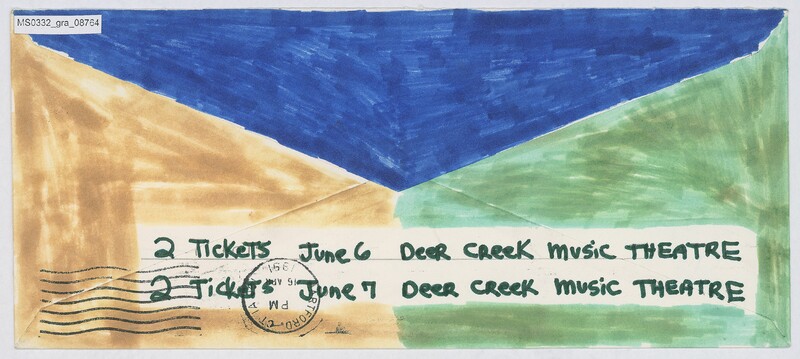 MS0332_gra_08764
2 TICKETS June 6 DEER CREEK MUSIC THEATRE
2 TICKETS June 7 DEER CREEK MUSIC THEATRE
RTFORD, CT
PM
15 APR
1991